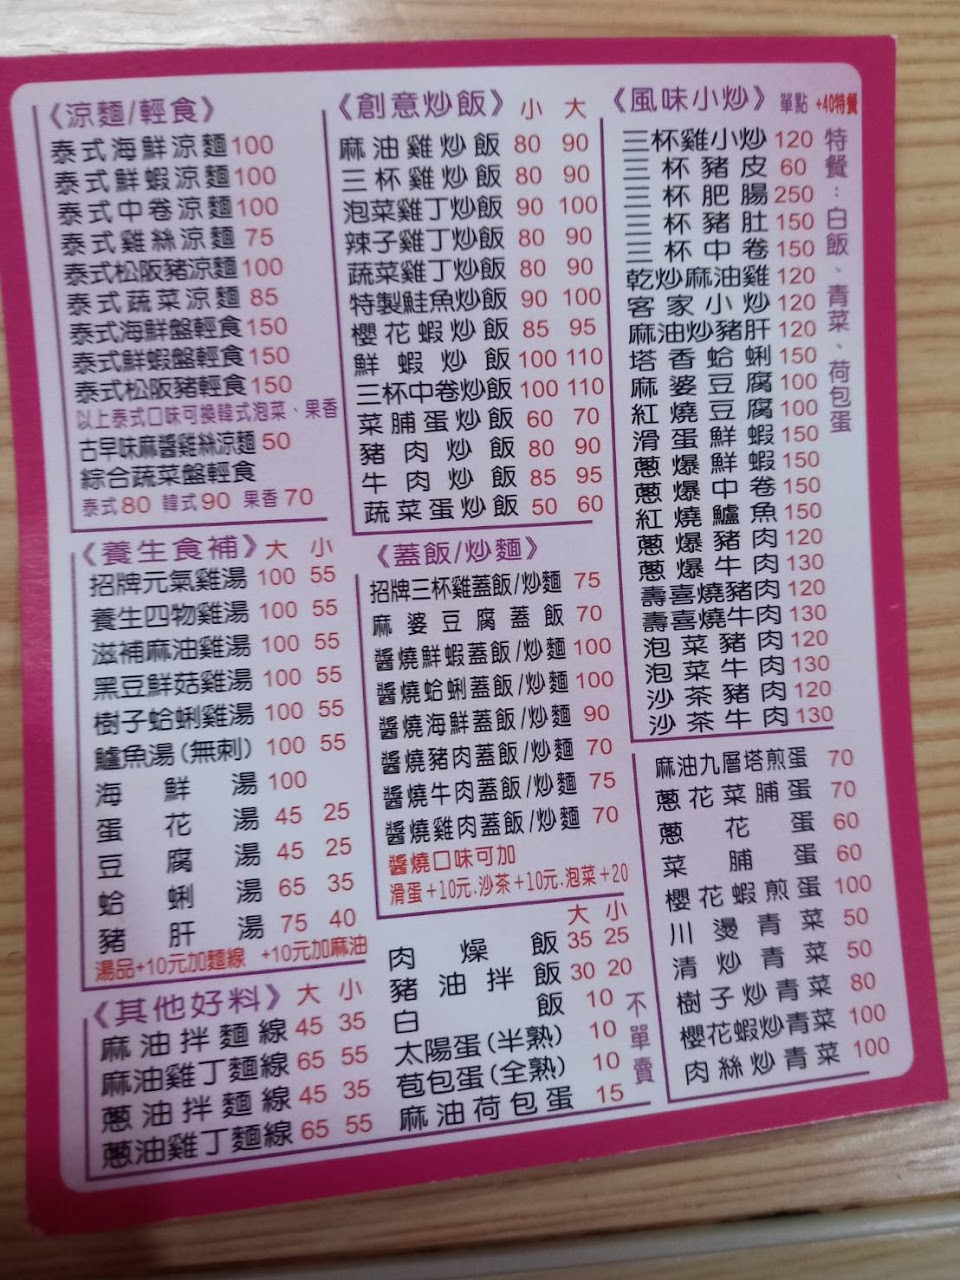 《涼麵/輕食》
泰式海鮮涼麵100
泰式鮮蝦涼麵100
泰式中卷涼麵100
泰式雞絲涼麵 75
泰式松阪豬涼麵100
泰式蔬菜涼麵 85
泰式海鮮盤輕食150
泰式鮮蝦盤輕食150
泰式松阪豬輕食150
以上泰式口味可換韓式泡菜、果香
古早味麻醬雞絲涼麵50
綜合蔬菜盤輕食
泰式80 韓式90 果香70
《養生食補》大 小
招牌元氣雞湯 100 55
養生四物雞湯 100 55
滋補麻油雞湯 100 55
黑豆鮮菇雞湯 100 55
樹子蛤蜊雞湯 100 55
鱸魚湯(無刺) 100 55
海鮮湯 100
蛋花湯 45 25
豆腐湯 45 25
蛤蜊湯 65 35
豬肝湯 75 40
湯品+10元加麵線 +10元加麻油
《其他好料》 大 小
麻油拌麵線 45 35
麻油雞丁麵線 65 55
蔥油拌麵線 45 35
蔥油雞丁麵線 65 55
《創意炒飯》 小 大
麻油雞炒飯 80 90
三杯雞炒飯 80 90
泡菜雞丁炒飯 90 100
辣子雞丁炒飯 80 90
蔬菜雞丁炒飯 80 90
特製鮭魚炒飯 90 100
櫻花蝦炒飯 85 95
鮮蝦炒飯 100 110
三杯中卷炒飯 100 110
菜脯蛋炒飯 60 70
豬肉炒飯 80 90
牛肉炒飯 85 95
蔬菜蛋炒飯 50 60
《蓋飯/炒麵》
招牌三杯雞蓋飯/炒麵 75
麻婆豆腐蓋飯 70
醬燒鮮蝦蓋飯/炒麵 100
醬燒蛤蜊蓋飯/炒麵 100
醬燒海鮮蓋飯/炒麵 90
醬燒豬肉蓋飯/炒麵 70
醬燒牛肉蓋飯/炒麵 75
醬燒雞肉蓋飯/炒麵 70
醬燒口味可加
滑蛋+10元.沙茶+10元.泡菜+20
大 小
肉燥飯 35 25
豬油拌飯 30 20
白飯 10
太陽蛋(半熟) 10
荷包蛋(全熟) 10
麻油荷包蛋 15
不單賣
《風味小炒》 單點 +40特餐
三杯雞小炒 120
三杯豬皮 60
三杯肥腸 250
三杯豬肚 150
三杯中卷 150
乾炒麻油雞 120
客家小炒 120
麻油炒豬肝 120
塔香蛤蜊 150
麻婆豆腐 100
紅燒豆腐 100
滑蛋鮮蝦 150
蔥爆鮮蝦 150
蔥爆中卷 150
紅燒鱸魚 150
蔥爆豬肉 120
蔥爆牛肉 130
壽喜燒豬肉 120
壽喜燒牛肉 130
泡菜豬肉 120
泡菜牛肉 130
沙茶豬肉 120
沙茶牛肉 130
特餐:白飯、青菜、荷包蛋
麻油九層塔煎蛋 70
蔥花菜脯蛋 70
蔥花蛋 60
菜脯蛋 60
櫻花蝦煎蛋 100
川燙青菜 50
清炒青菜 50
樹子炒青菜 80
櫻花蝦炒青菜 100
肉絲炒青菜 100